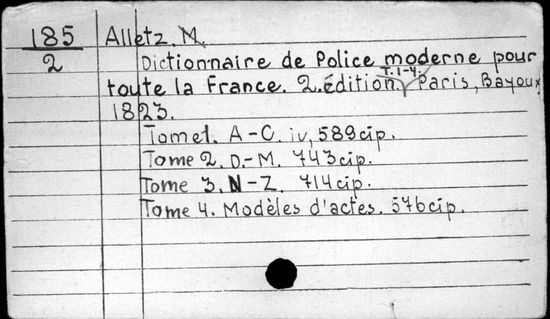 185
2
Alletz. M.
Dictionnaire de Police moderne pour
toute la France. 2. édition. T. 1-4. Paris, Bayoux,
1823.
Tome 1. A-C. iv, 589 cip.
Tome 2. D.-M. 743 cip.
Tome 3. N-Z. 714 cip.
Tome 4. Modèles d'actes. 576 cip.